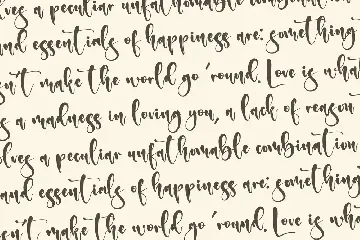 lves a peculiar unfathomable combination
and essentials of happiness are: something
sn't make the world go 'round. Love is what
s a madness in loving you, a lack of reason
olves a peculiar unfathomable combination
and essentials of happiness are: something
sn't make the world go 'round. Love is wha